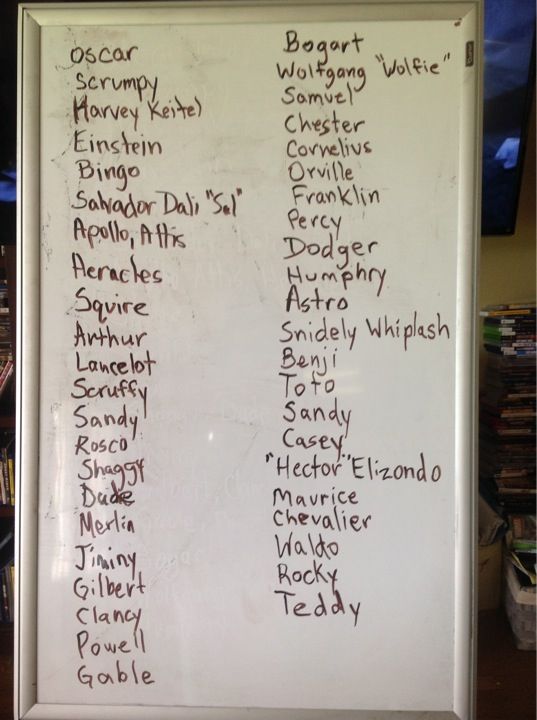 Oscar
Scrumpy
Harvey Keitel
Einstein
Bingo
Salvador Dali "Sal"
Apollo, Attis
Heracles
Squire
Arthur
Lancelot
Scruffy
Sandy
Rosco
Shaggy
Dude
Merlin
Jiminy
Gilbert
Clancy
Powell
Gable
Bogart
Wolfgang "Wolfie"
Samuel
Chester
Cornelius
Orville
Franklin
Percy
Dodger
Humphry
Astro
Snidely Whiplash
Benji
Toto
Sandy
Casey
"Hector" Elizondo
Maurice
Chevalier
Waldo
Rocky
Teddy